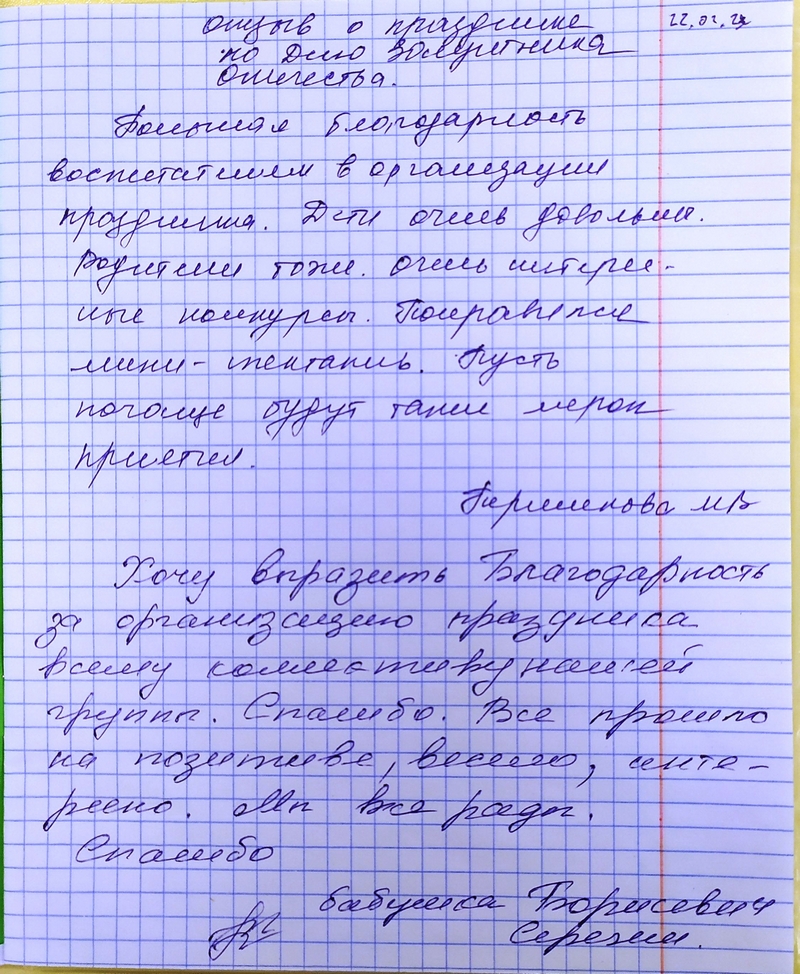 отзыв о празднике
ко Дню Защитника
Отечества.
Большая благодарность
воспитателям в организации
праздника. Дети очень довольны.
Родители тоже. Очень интерес-
ные конкурсы. Понравился
мини-спектакль. Пусть
почаще будут такие мероп
приятия.
М В
Хочу выразить Благодарность
за организацию праздника
всему коллективу нашей
группы. Спасибо. Все прошло
на позитиве, весело, инте-
ресно. Мы все рады.
Спасибо
бабушка Борисевич
Серёжи.